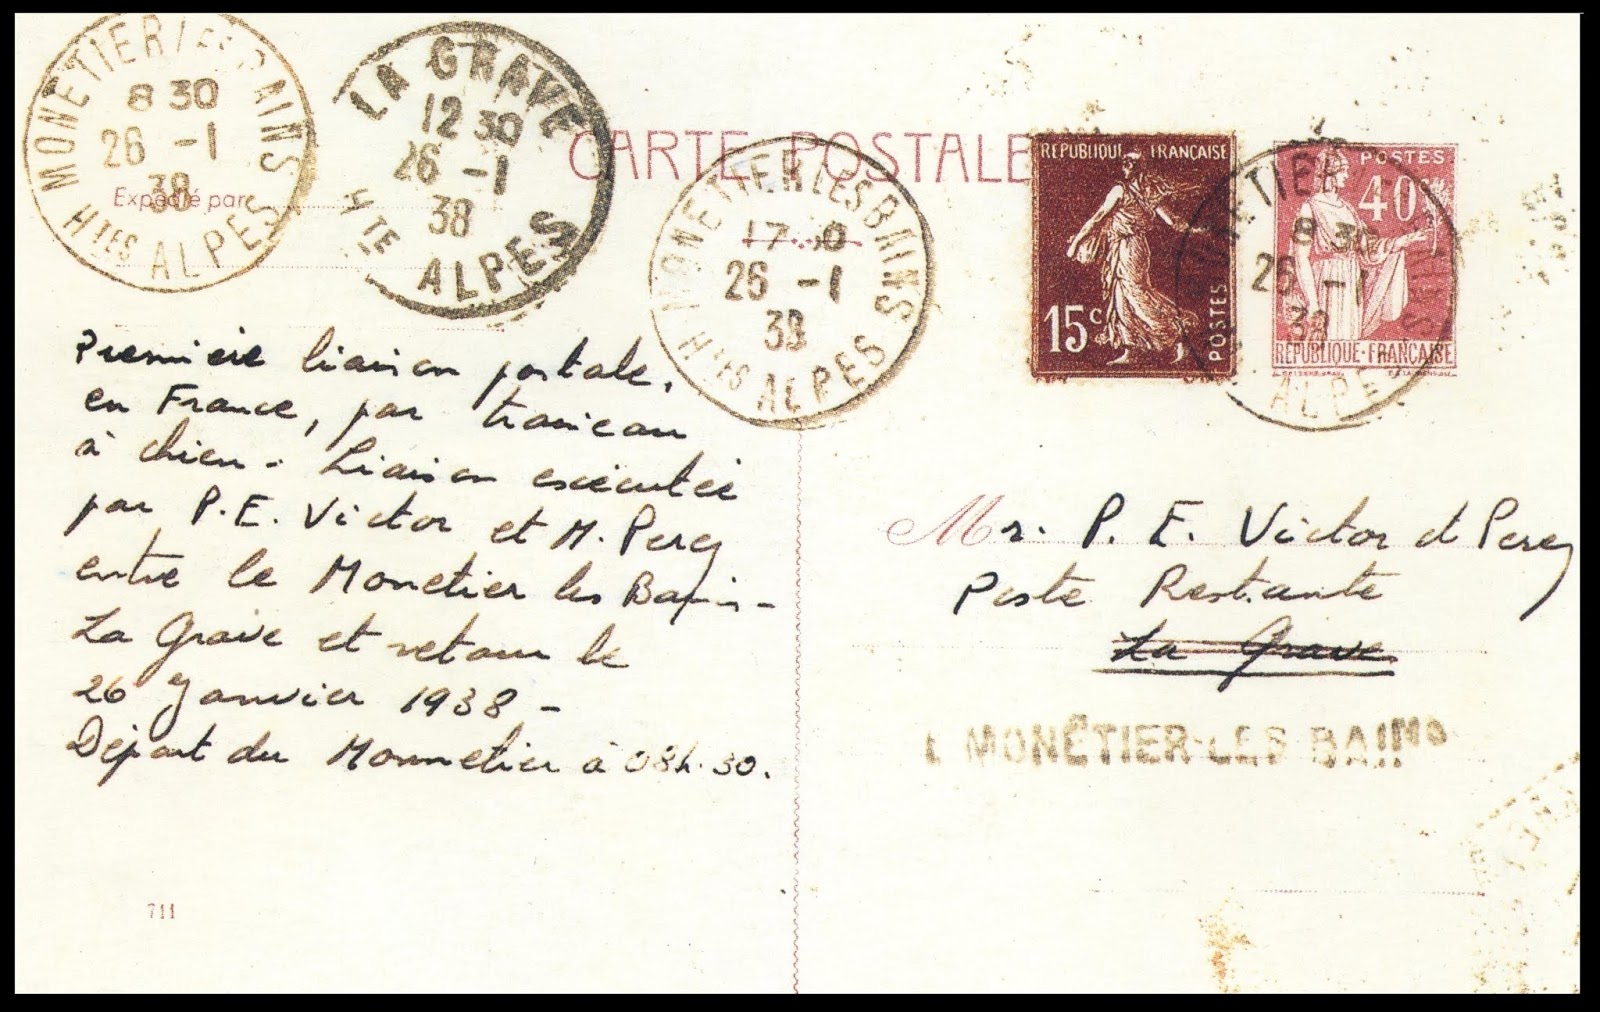 MONETIER LES BAINS
8 30
26 -1
38
Htes ALPES
LA GRAVE
12 30
26 -1
38
Hte ALPES
CARTE POSTALE
Expédié par
MONETIER LES BAINS
17 30
26 -1
38
Htes ALPES
REPUBLIQUE FRANÇAISE
15c
POSTES
POSTES
40
REPUBLIQUE·FRANÇAISE
MONETIER
8 30
26 -1
38
ALPES
Première liaison postale,
en France, par traineau
à chien - Liaison exécutée
par P. E. Victor et M. Percy
entre le Monetier les Bains -
La Grave et retour le
26 Janvier 1938 -
Départ du Monnetier à 08h.30.
Mrs. P. E. Victor et Percy
Poste Restante
La Grave
MONÊTIER-LES BAINS
711